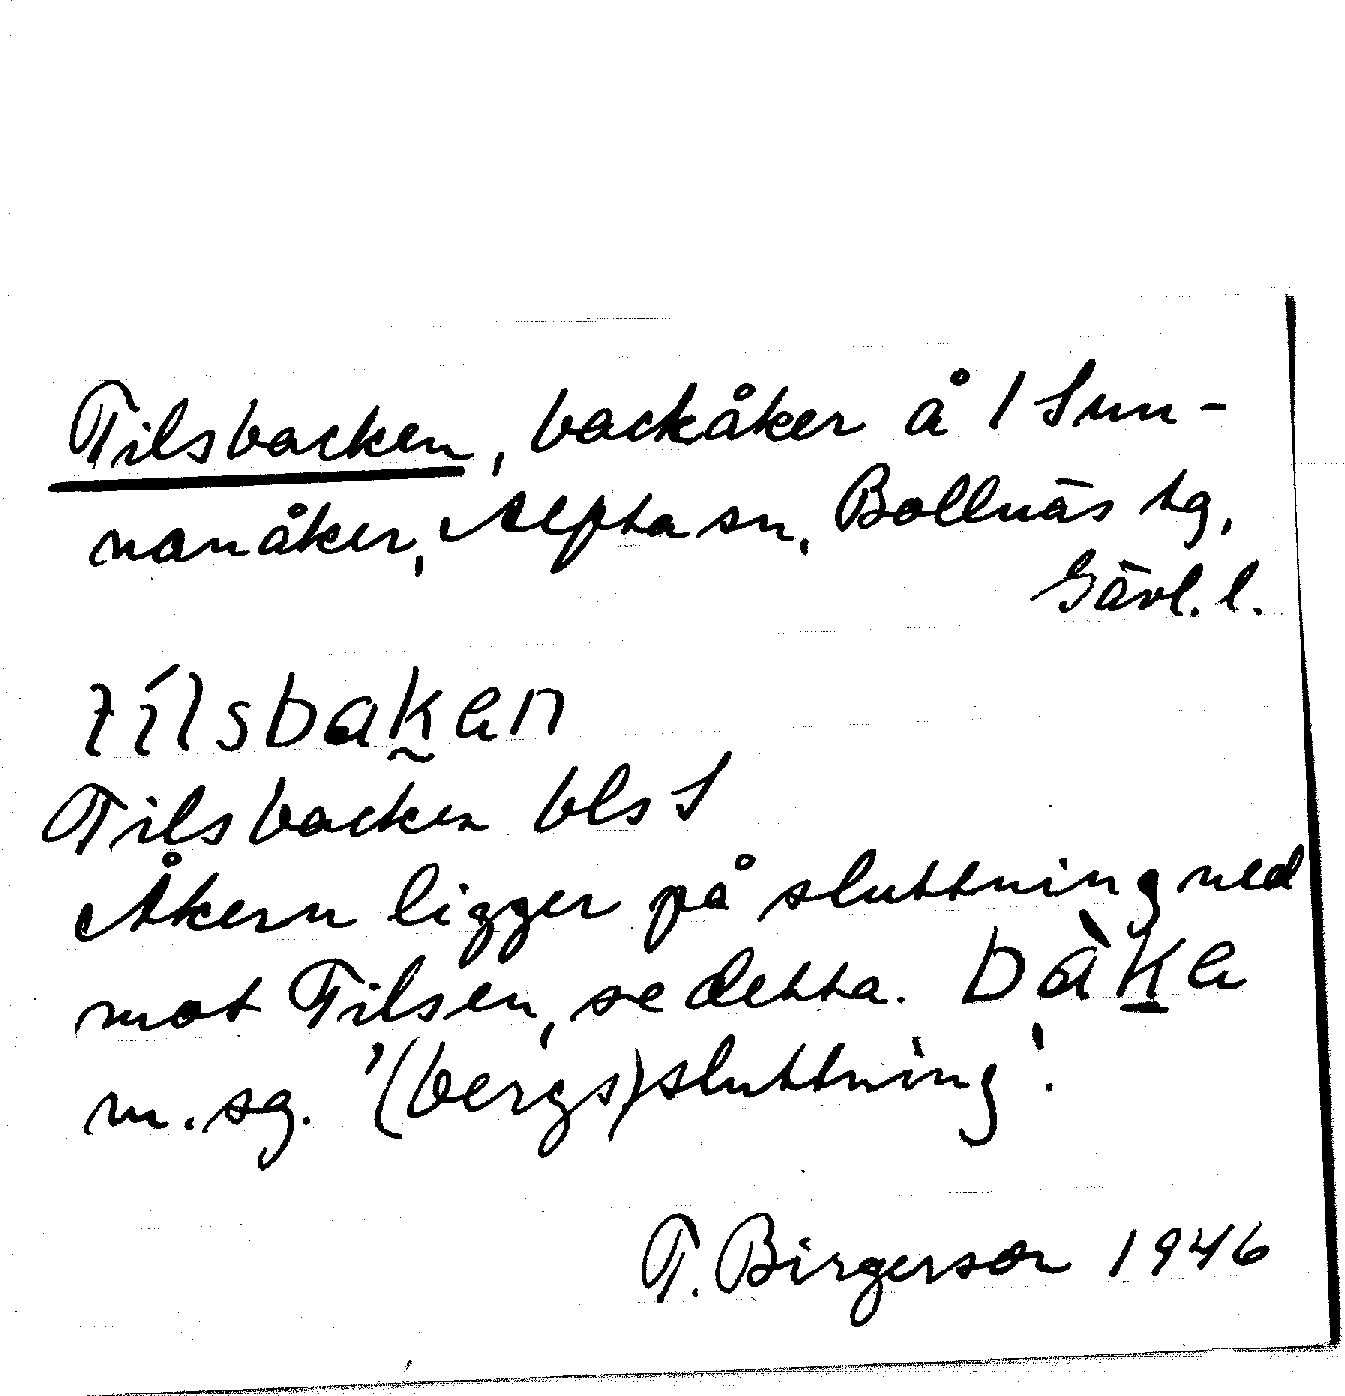 Tilsbacken, backåker å 1 Sun-
nanåker, Alfta sn, Bollnäs tg,
Gävl. l.
tílsbak̰en
Tilsbacken bls S
Åkern ligger på sluttning ned
mot Tilsen, se detta. bàḵe
m. sg. '(bergs)sluttning'.
T. Birgerson 1946